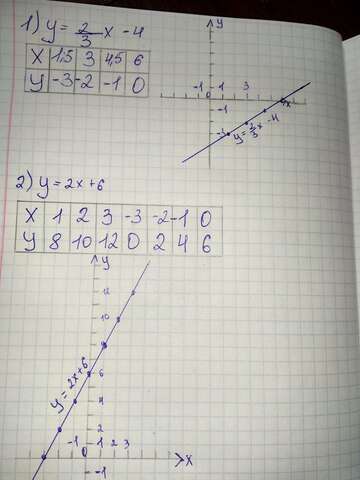 1) y = 2/3 x - 4
X 1,5 3 4,5 6
y -3 -2 -1 0
y
-1 0 1 3
-1
x
-3
y = 2/3 x - 4
2) y = 2x + 6
X 1 2 3 -3 -2 -1 0
y 8 10 12 0 2 4 6
y
12
10
8
6
4
2
1
-1 0 1 2 3
x
-1
y = 2x + 6